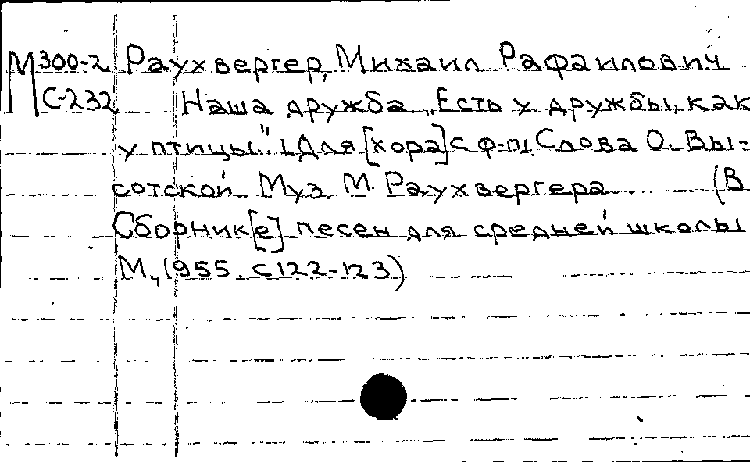 М300-2 Раухвергер, Михаил Рафаилович
С-232 Наша дружба „Есть у дружбы, как
у птицы". Для [хора] с ф-п. Слова О. Вы-
сотской. Муз М. Раухвергера (В
Сборник[е] песен для средней школы
М., 1955. с 122-123)